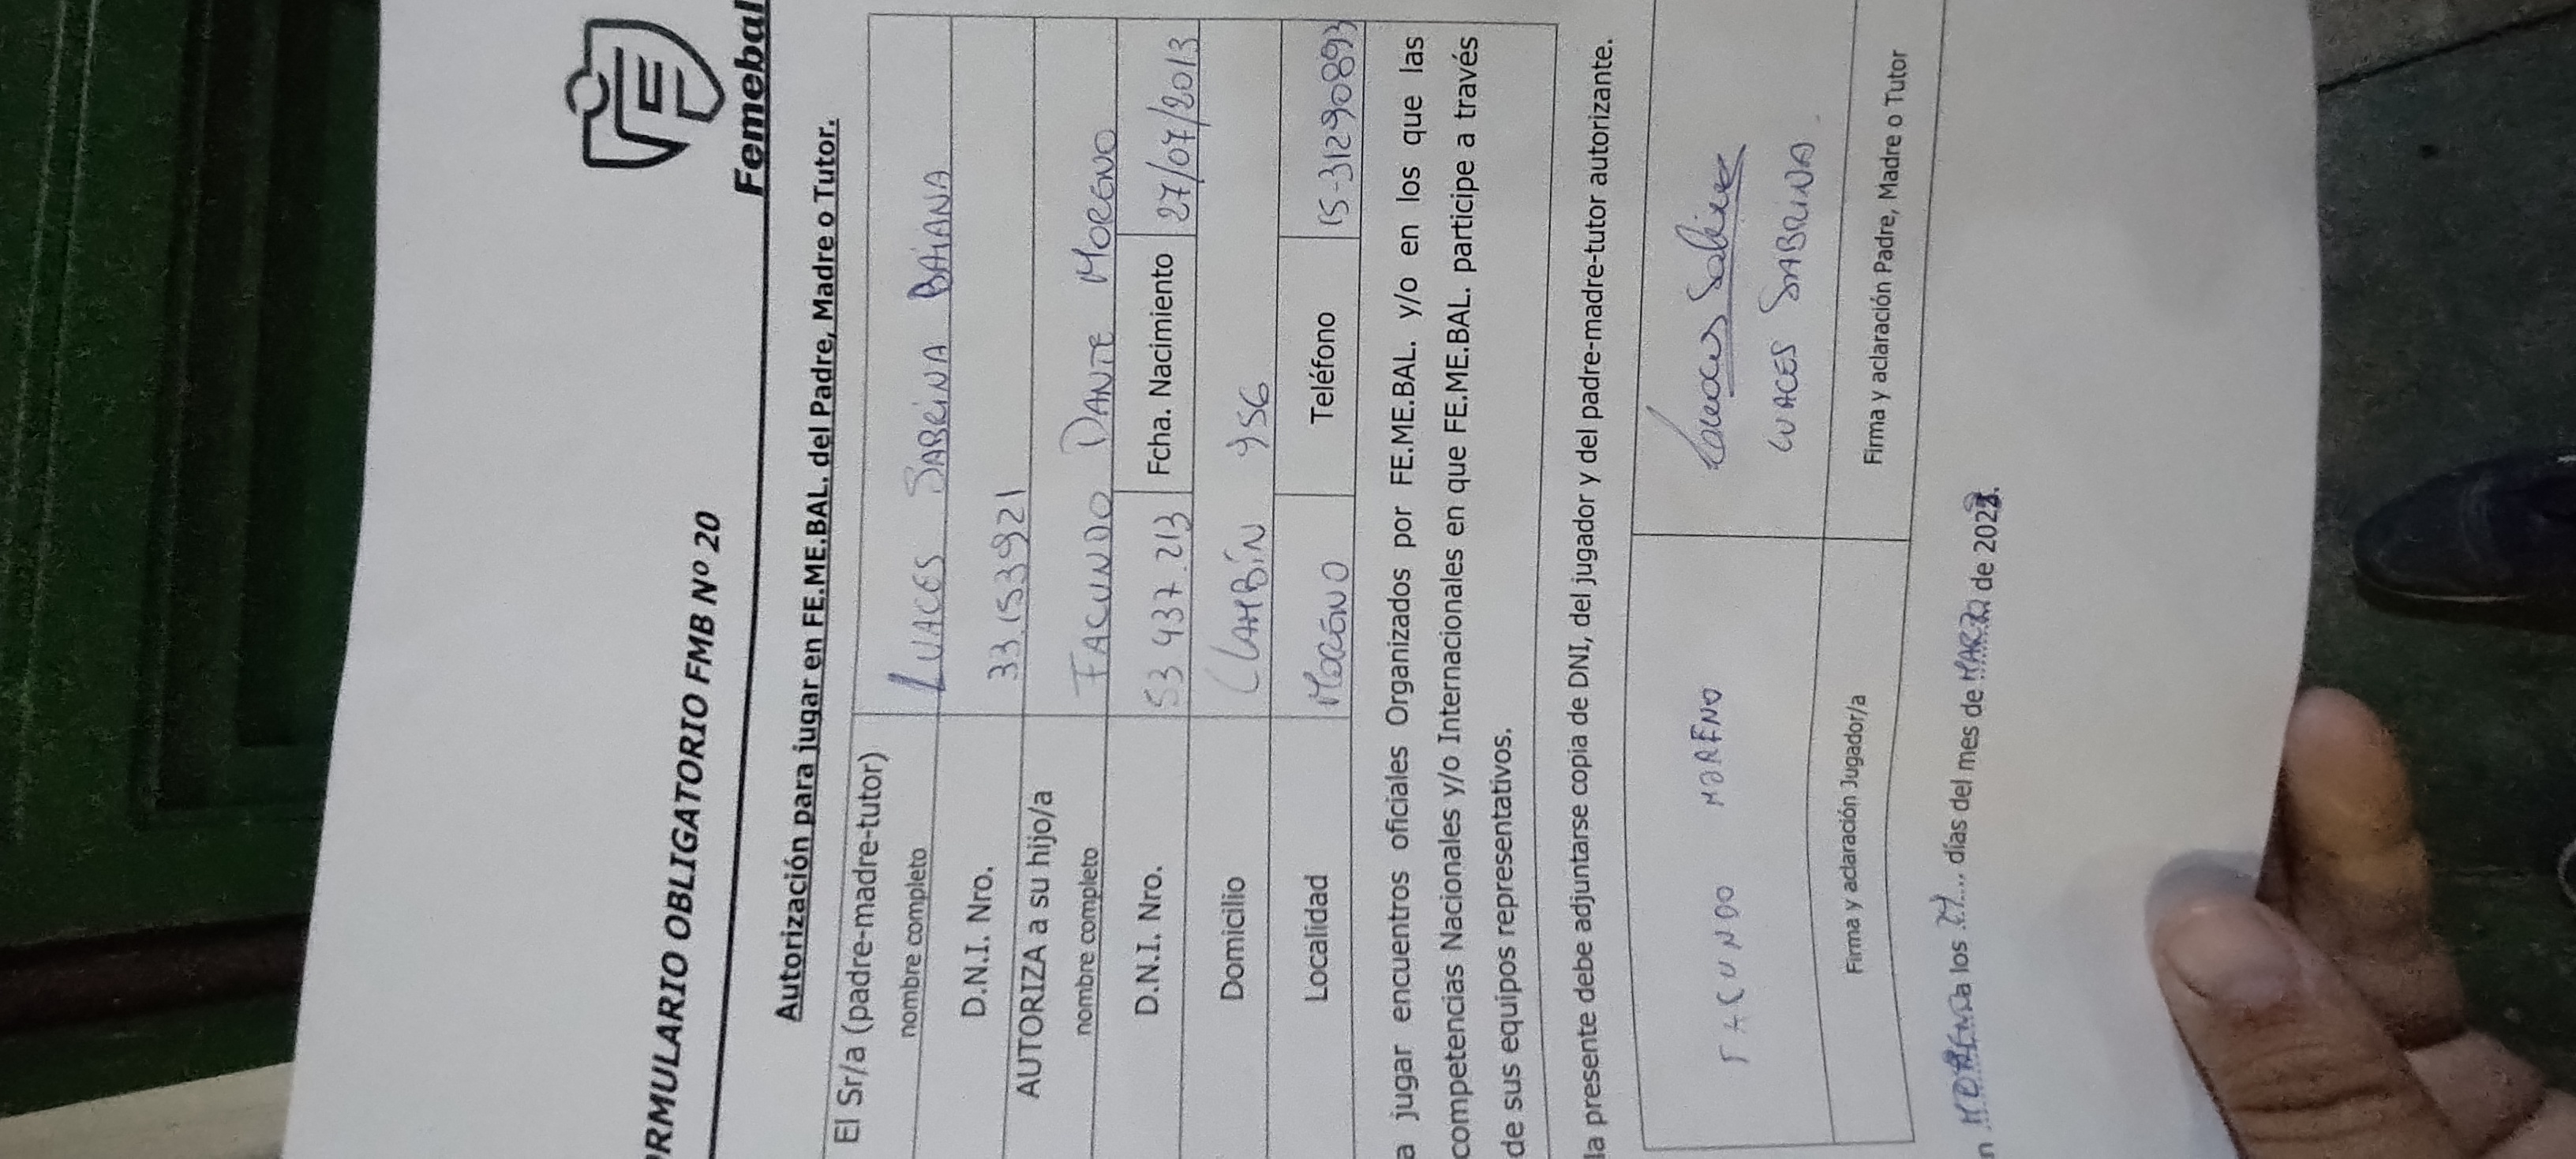 Femebal
RMULARIO OBLIGATORIO FMB Nº 20
Autorización para jugar en FE.ME.BAL. del Padre, Madre o Tutor.
El Sr/a (padre-madre-tutor)
nombre completo LUACES SABRINA DAIANA
D.N.I. Nro. 33.153921
AUTORIZA a su hijo/a
nombre completo FACUNDO DANTE MORENO
D.N.I. Nro. 53 437.213 Fcha. Nacimiento 27/07/2013
Domicilio 956
Localidad MORENO Teléfono 15-31290893
a jugar encuentros oficiales Organizados por FE.ME.BAL. y/o en los que las
competencias Nacionales y/o Internacionales en que FE.ME.BAL. participe a través
de sus equipos representativos.
la presente debe adjuntarse copia de DNI, del jugador y del padre-madre-tutor autorizante.
Luaces Sabrina
FACUNDO MORENO LUACES SABRINA.
Firma y aclaración Jugador/a Firma y aclaración Padre, Madre o Tutor
n MORENO a los 27 días del mes de MARZO de 202